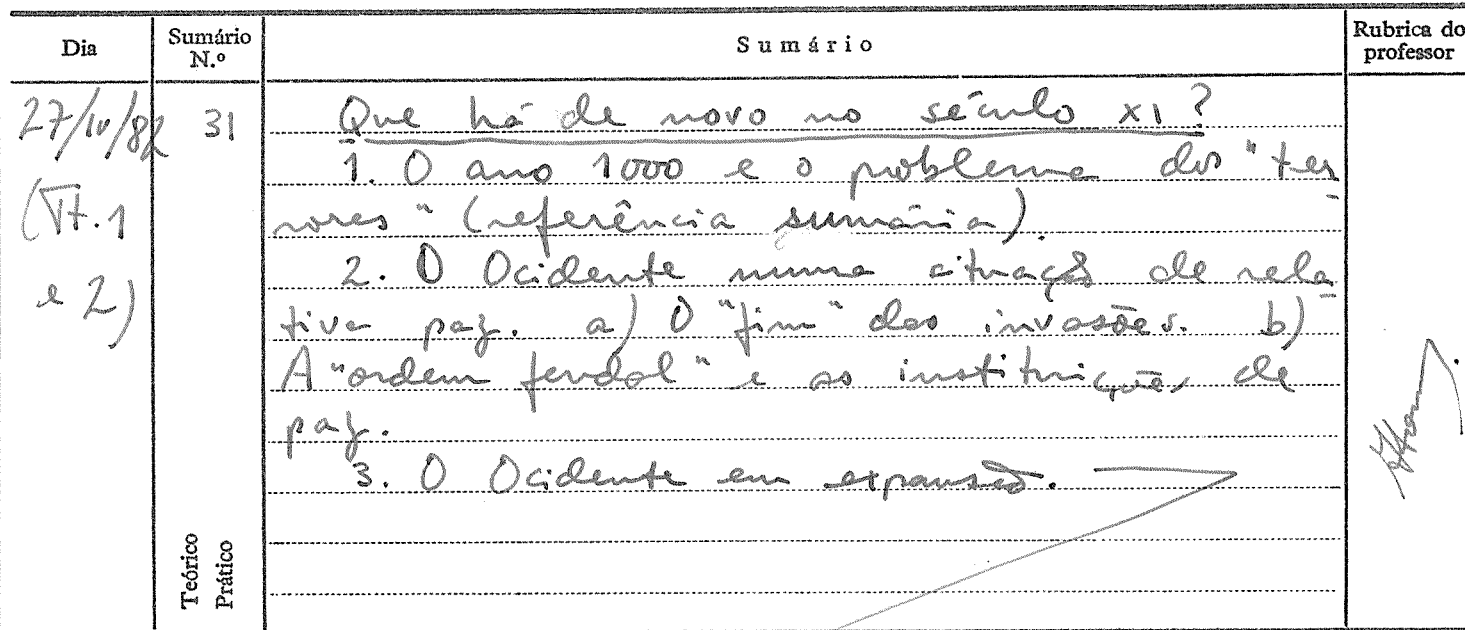 Dia
Sumário N.º
Sumário
Rubrica do professor
27/IV/82 31 Que há de novo no século XI?
1. O ano 1000 e o problema dos "ter-
(Tt. 1 rores" (referência sumária).
2. O Ocidente numa situação de rela-
e 2) tiva paz. a) O "fim" das invasões. b)
A "ordem feudal" e as instituições de
paz.
3. O Ocidente em expansão.
Teórico
Prático